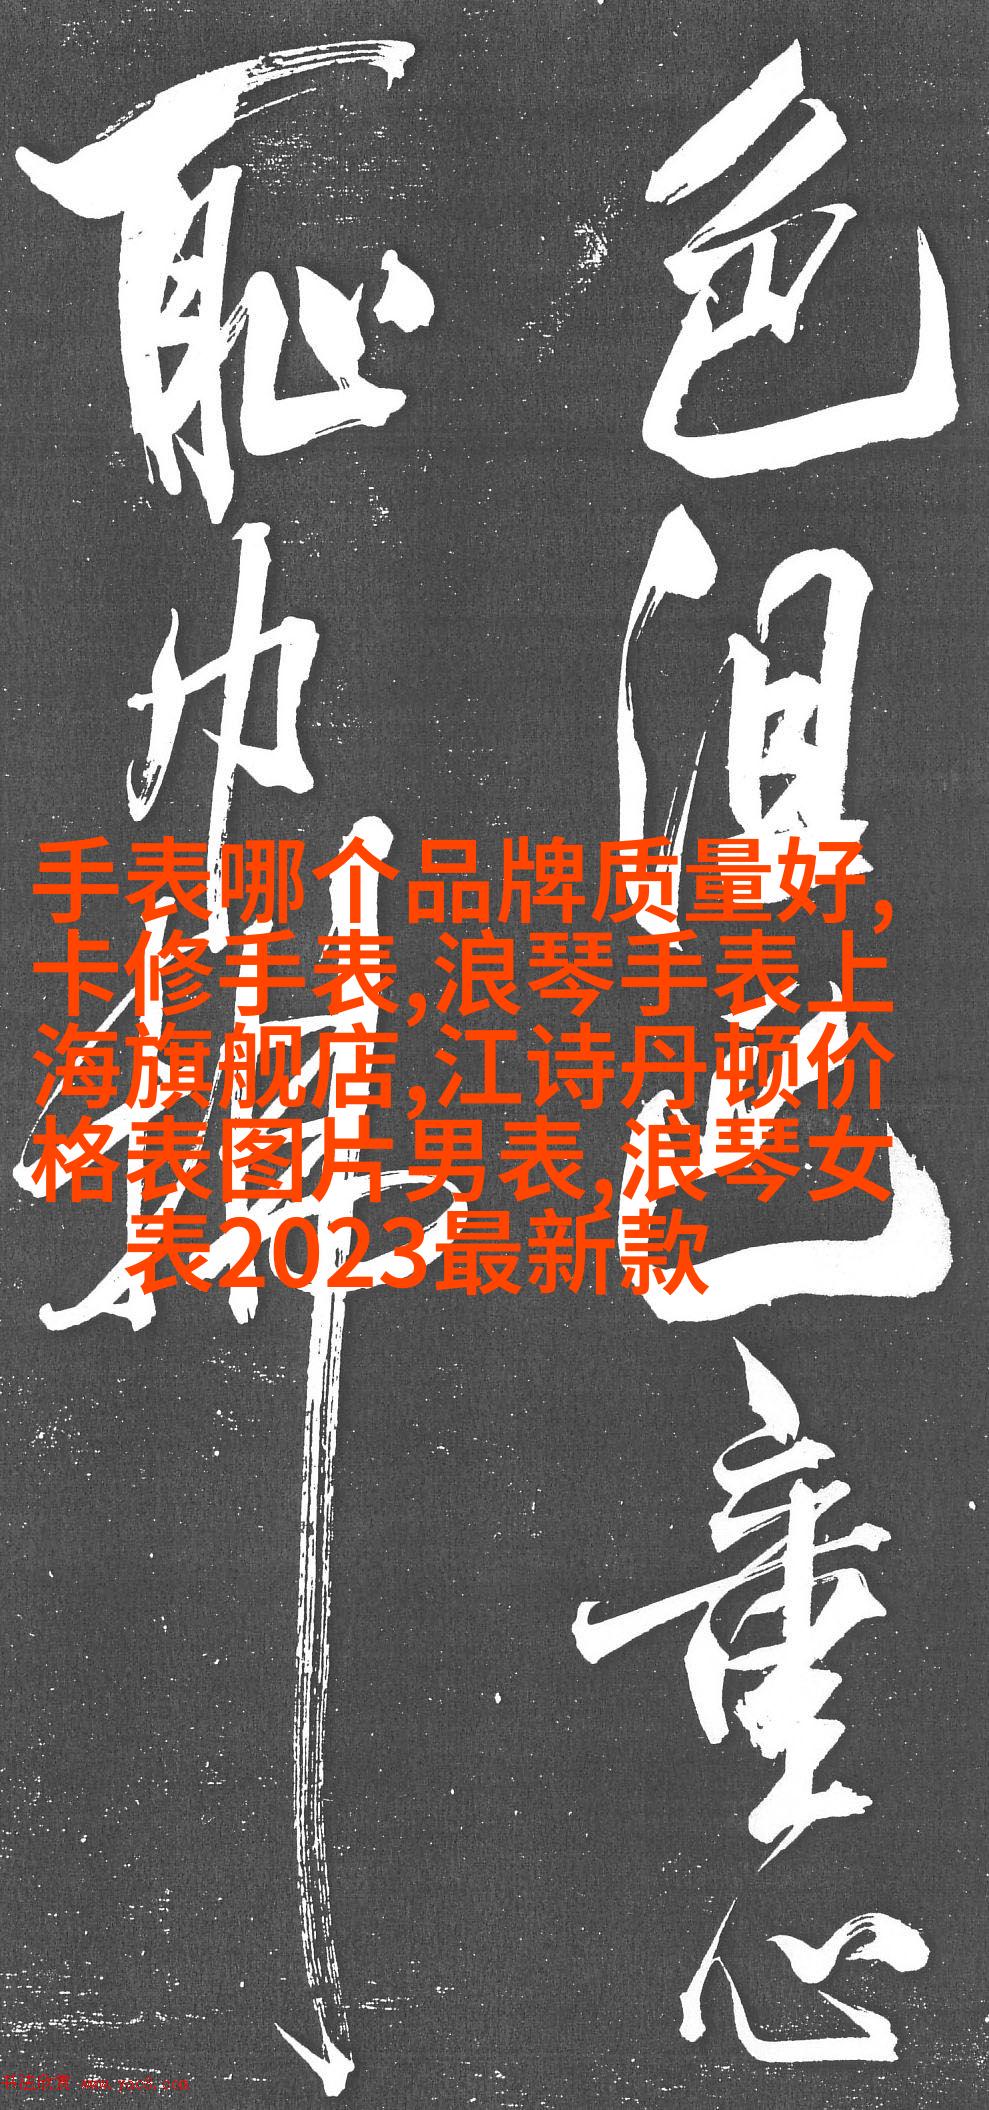 色沮邑重心
恥巾帼
手表哪个品牌质量好,
卡修手表,浪琴手表上
海旗舰店,江诗丹顿价
格表图片男表,浪琴女
表2023最新款